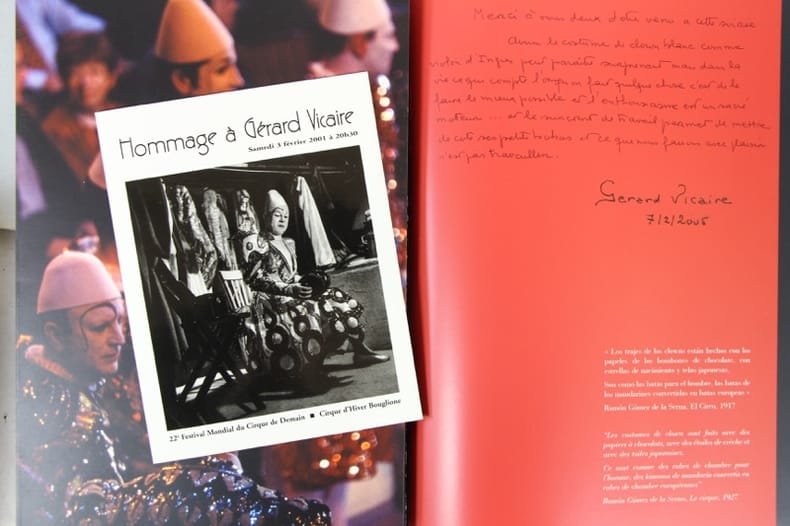 Hommage à Gérard Vicaire
Samedi 3 février 2001 à 20h30
22e Festival Mondial du Cirque de Demain ■ Cirque d'Hiver Bouglione
Merci à vous deux d'être venu a cette soirée
Avoir le costume de clown blanc comme
violon d'Ingres peut paraître surprenant mais dans la
vie ce qui compte l'orsqu'on fait quelque chose c'est de le
faire le mieux possible et l'enthousiasme est un sacré
moteur ... et le surcroit de travail permet de mettre
de coté ses petits bobos et ce que nous faisons avec plaisir
n'est pas travailler.
Gerard Vicaire
7/2/2006
« Los trajes de los clowns están hechos con los
papeles de los bombones de chocolate, con
estrellas de nacimiento y telas japonesas.
Son como las batas para el hombre, las batas de
los mandarines convertidas en batas europeas »
Ramón Gómez de la Serna, El Circo, 1917
"Les costumes de clown sont faits avec des
papiers à chocolats, avec des étoiles de crèche et
avec des toiles japonaises.
Ce sont comme des robes de chambre pour
l'homme, des kimonos de mandarin convertis en
robes de chambre européennes"
Ramón Gómez de la Serna, Le cirque, 1927